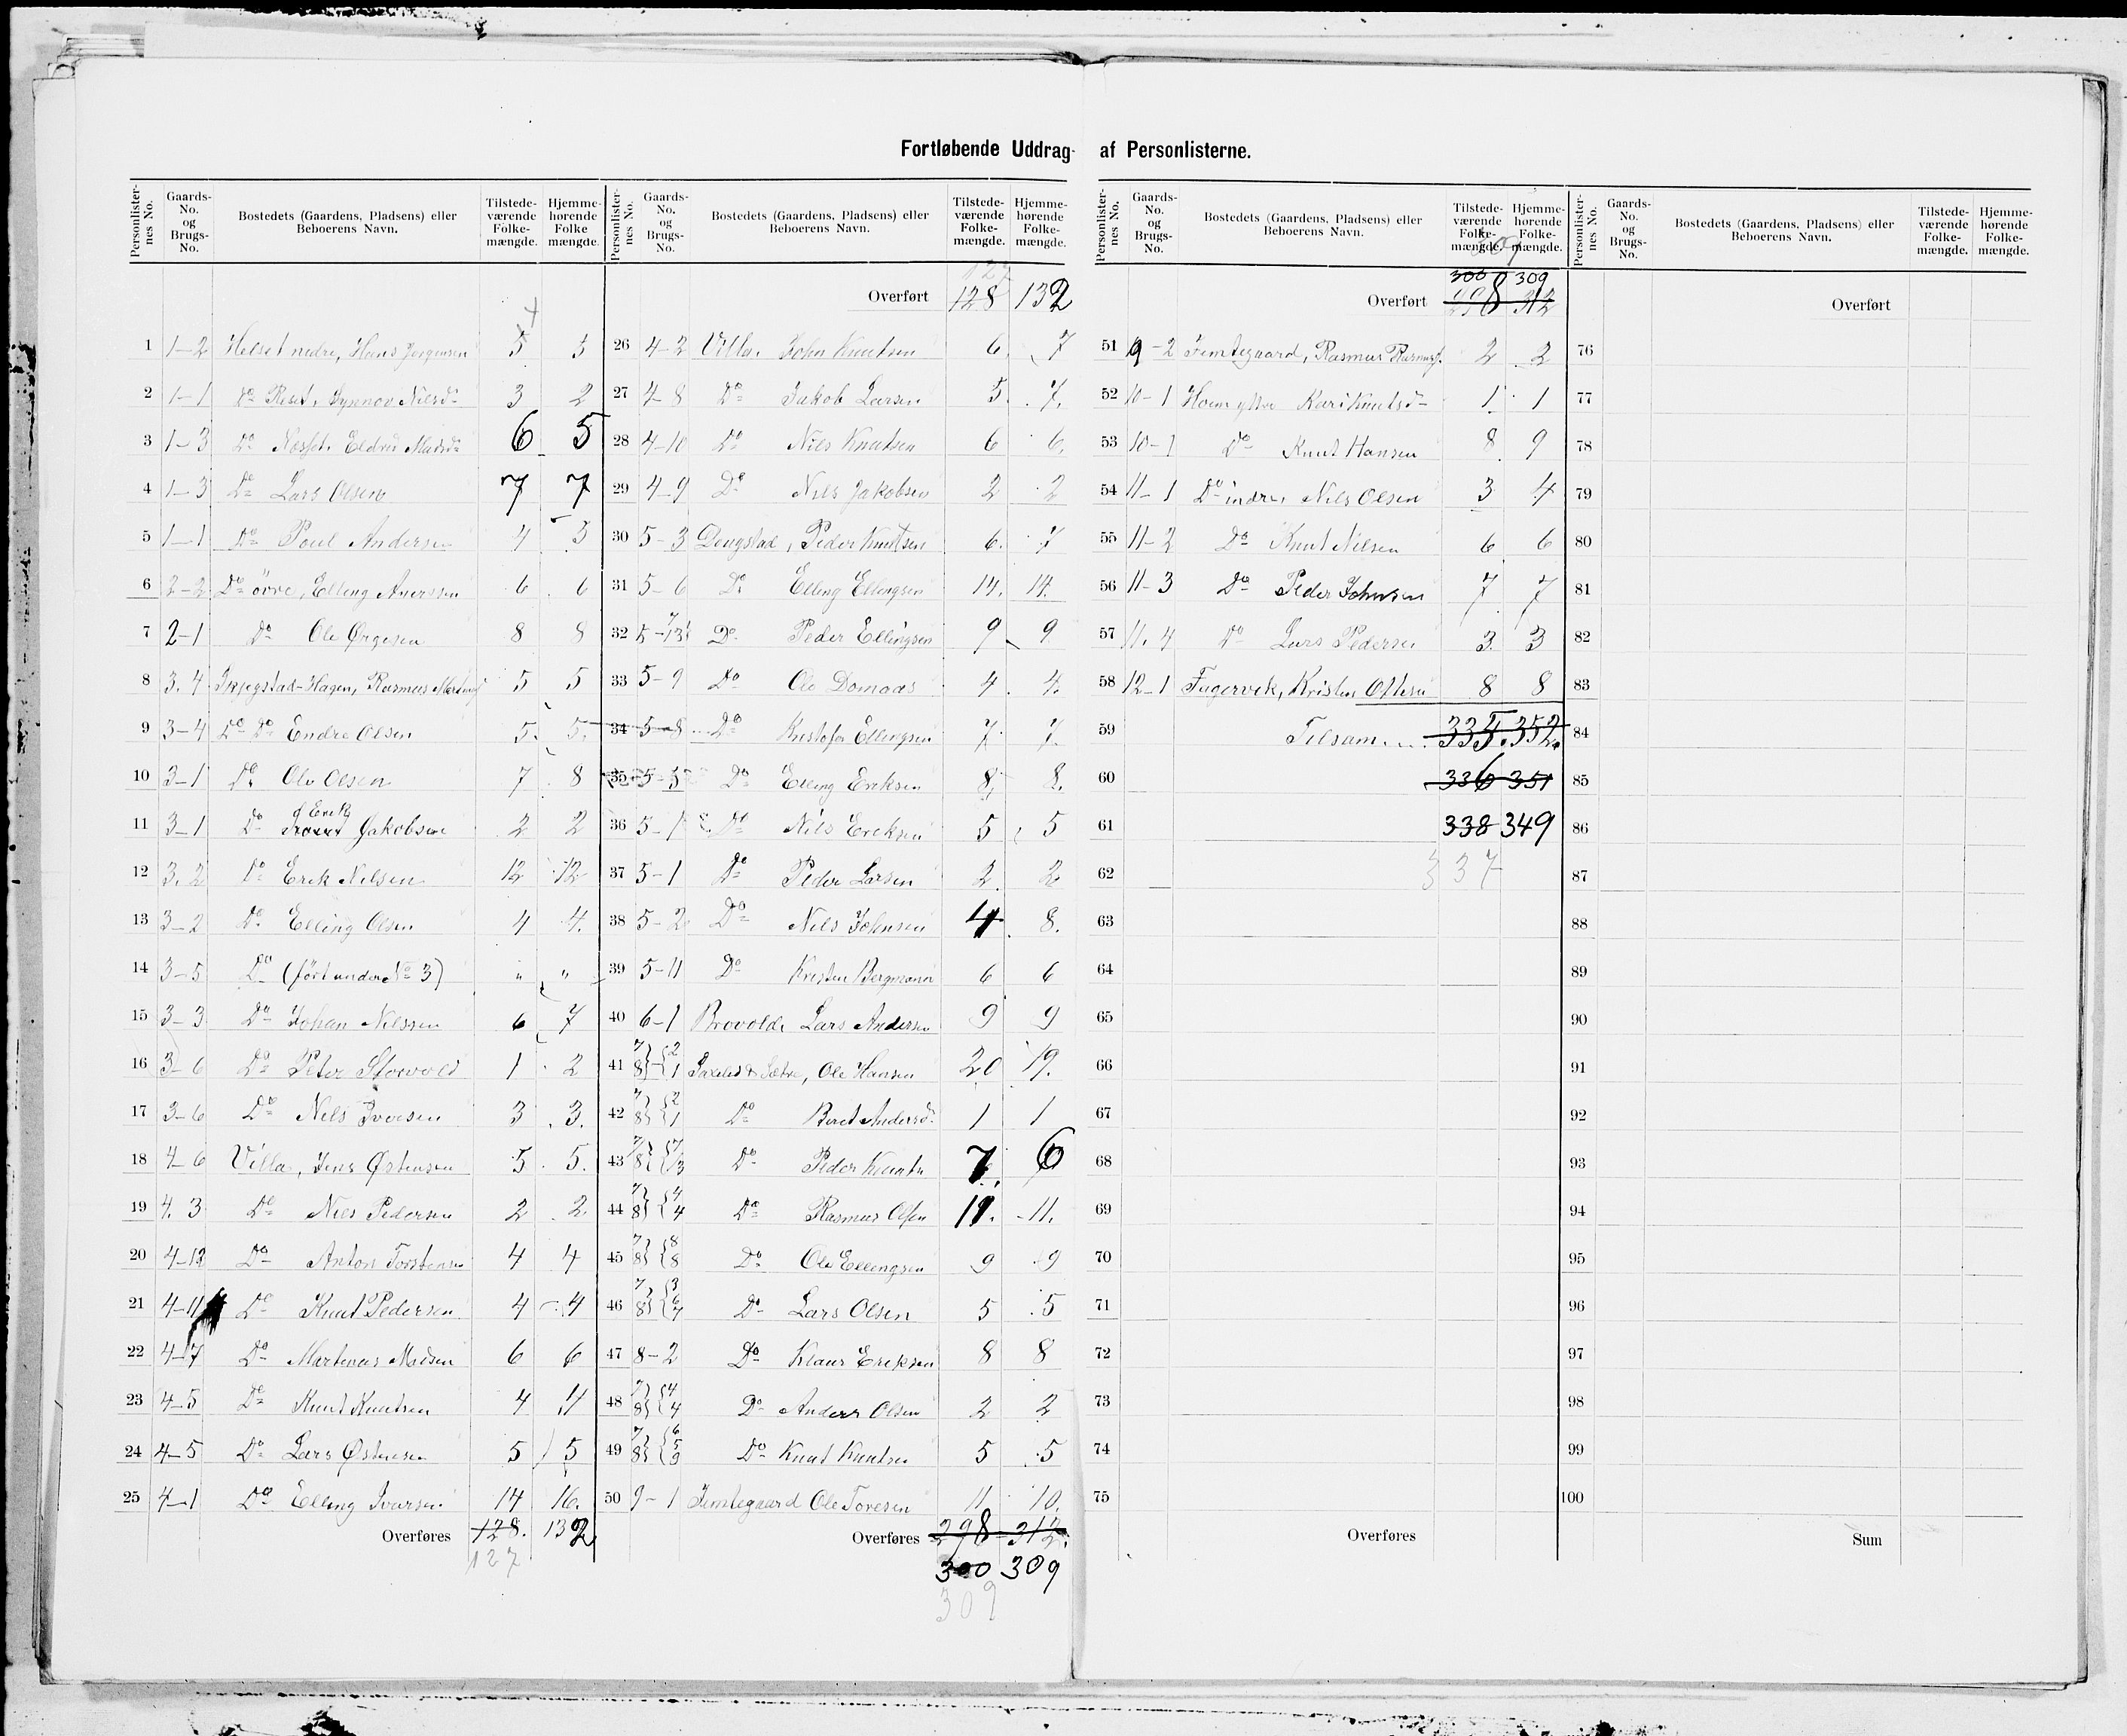 Fortløbende Uddrag af Personlisterne.
Personlister-nes No. Gaards-No. og Brugs-No. Bostedets (Gaardens, Pladsens) eller Beboerens Navn. Tilstede-værende Folke-mængde. Hjemme-hørende Folke mængde.
1 1-2 Helset nedre, Hans Jørgensen 5 5
2 1-1 Do Reset, Synnøv Nilsd. 3 2
3 1-3 Do Eldrid Madsd. 6 5
4 1-3 Do Lars Olsen 7 7
5 1-1 Do Poul Andersen 4 5
6 2-2 Do övre, Elling 6 6
7 2-1 Do Ole 8 8
8 3.4 Rasmus 5 5
9 3-4 Do Do Endre Olsen 5. 5.
10 3-1 Do Ole Olsen 7 8
11 3-1 Do Erik Jakobsen 2 2
12 3.2 Do Erik Nilsen 12 12
13 3-2 Do Elling Olsen 4 4.
14 3-5 Do (ført under No 3) " "
15 3-3 Do Johan Nilssen 6 7
16 3-6 Do Peter 1 2
17 3-6 Do Nils Iversen 3 3.
18 4-6 Villa, Jens Østensen 5 5.
19 4.3 Do Nils Pedersen 2 2
20 4-12 Do Anton Torstensen 4 4
21 4-11 Do Knut Pedersen 4 4
22 4-7 Do Martinus Madsen 6 6
23 4-5 Do Knut Knutsen 4 4
24 4-5 Do Lars Østensen 5 5
25 4-1 Do Elling Ivarsen 14 16.
Overføres 128. 132
127
Personlister-nes No. Gaards-No. og Brugs-No. Bostedets (Gaardens, Pladsens) eller Beboerens Navn. Tilstede-værende Folke-mængde. Hjemme-hørende Folke-mængde.
127
Overført 128 132
26 4-2 Villa, John Knutsen 6 7
27 4-8 Do Jakob Larsen 5. 7.
28 4-10 Do Nils Knutsen 6 6.
29 4-9 Do Nils Jakobsen 2 2
30 5-3 Dengstad, Peder Knutsen 6. 7
31 5-6 Do Elling Ellingsen 14. 14.
32 5-13 Do Peder Ellingsen 9 9
33 5-9 Do Ole Domaas 4 4.
34 5-8 Do Kristofer Ellingsen 7 7.
35 5-5 Do Elling Eriksen 8. 8.
36 5-1 Do Nils Ereksen 5 5
37 5-1 Do Peder Larsen 2. 2
38 5-2 Do Nils Johnsen 4 8.
39 5-11 Do Kristen Bergmann 6 6
40 6-1 Brovold, Lars Andersen 9 9
41 7 8 2 1 Sætre, Ole Hansen 20 19.
42 7 8 2 1 Do Beret Andersd. 1 1
43 7 8 7 3 Do Peder Knuts 7 6
44 7 8 4 4 Do Rasmus Olsen 11. 11.
45 7 8 8 8 Do Ole Ellingsen 9 9
46 7 8 3 6 7 Do Lars Olsen 5 5
47 8-2 Do Klaus Eriksen 8 8
48 7 8 4 4 Do Anders Olsen 2 2
49 7 8 6 5 9 Do Knut Knutsen 5 5
50 9-1 Femtegaard Ole Toresen 11 10.
Overføres 298 312.
300 309
309
Personlister-nes No. Gaards-No. og Brugs-No. Bostedets (Gaardens, Pladsens) eller Beboerens Navn. Tilstede-værende Folke-mængde. Hjemme-hørende Folke-mængde.
300 309
Overført 298 312
51 9-2 Femtegaard, Rasmus Rasmuss. 2 2
52 10-1 Hoem yttre Kari Knutsd. 1 1
53 10-1 Do Knut Hansen 8 9
54 11-1 Do indre, Nils Olsen 3 4
55 11-2 Do Knut Nilsen 6 6
56 11-3 Do Peder Johnsen 7 7
57 11.4 Do Lars Pedersen 3. 3
58 12-1 Fagervik, Kristen Ottesen 8 8
59 Tilsam.... 335. 352.
60 336 351
61 338 349
62 337
63
64
65
66
67
68
69
70
71
72
73
74
75
Overføres
Personlister-nes No. Gaards-No. og Brugs-No. Bostedets (Gaardens, Pladsens) eller Beboerens Navn. Tilstede-værende Folke-mængde. Hjemme-hørende Folke-mængde.
Overført
76
77
78
79
80
81
82
83
84
85
86
87
88
89
90
91
92
93
94
95
96
97
98
99
100
Sum